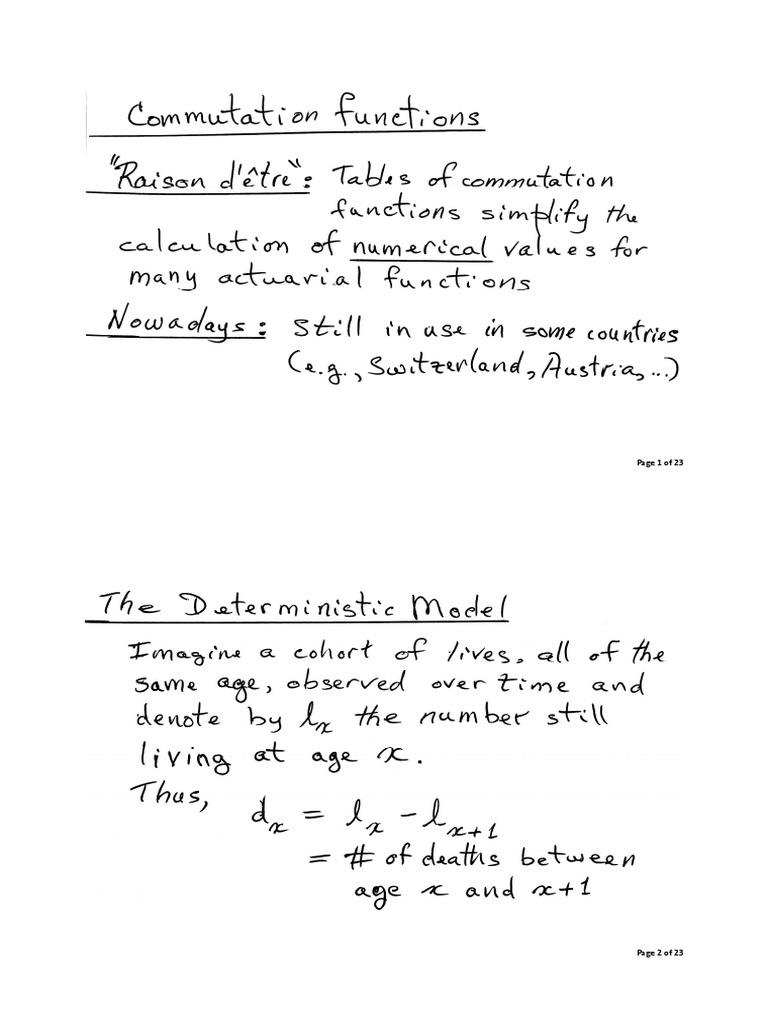 Commutation functions
"Raison d'être": Tables of commutation
functions simplify the
calculation of numerical values for
many actuarial functions
Nowadays: Still in use in some countries
(e.g., Switzerland, Austria, ...)
Page 1 of 23
The Deterministic Model
Imagine a cohort of lives, all of the
same age, observed over time and
denote by lₓ the number still
living at age x.
Thus,
dₓ = lₓ - lₓ₊₁
= # of deaths between
age x and x+1
Page 2 of 23